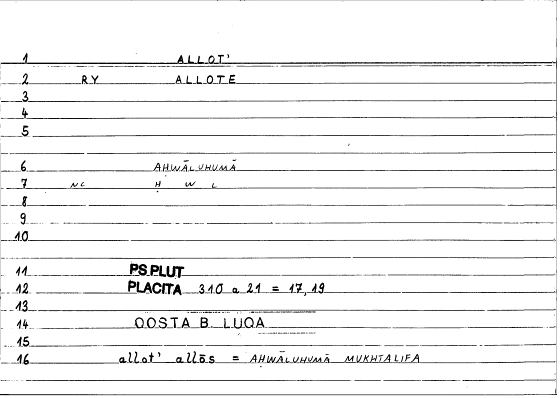 1 ALLOT'
2 RY ALLOTE
3
4
5
6 AḤWĀLUHUMĀ
7 NC Ḥ W L
8
9
10
11 PS.PLUT
12 PLACITA 310 a 21 = 17,19
13
14 QOSTA B. LUQA
15
16 allot' allōs = AḤWĀLUHUMĀ MUKHTALIFA